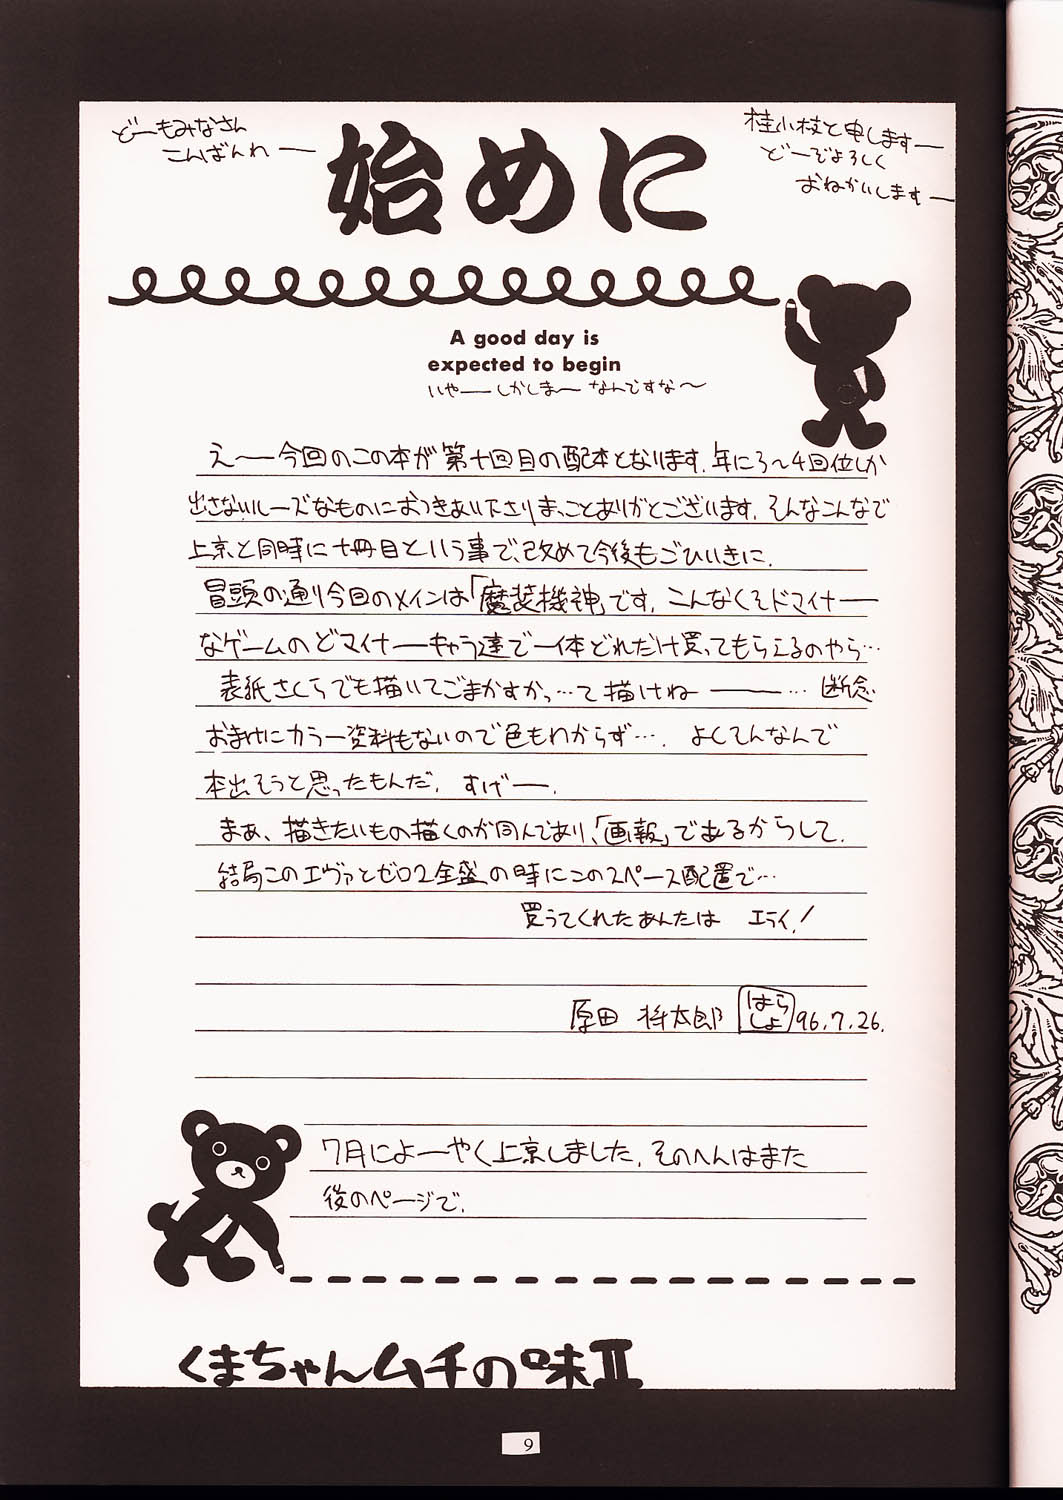 どーもみなさん
こんばんわー
始めに
桂小枝と申しますー
どーぞよろしく
おねがいしますー
A good day is
expected to begin
いやー しかしまー なんですなー
えー今回のこの本が第十回目の配本となります。年に3〜4回位しか
出さないルーズなものにおつきあい下さりまことにありがとうございます。そんなこんなで
上京と同時に十冊目という事で、改めて今後もごひいきに。
冒頭の通り今回のメインは「魔装機神」です。こんなくそドマイナー
なゲームのどマイナーキャラ達で一体どれだけ買ってもらえるのやら…
表紙さくらでも描いてごまかすかっ…て描けねーー… 断念
おまけにカラー資料もないので色もわからず…. よくそんなんで
本出そうと思ったもんだ. すげー.
まぁ、描きたいもの描くのが同人であり、「画報」であるからして.
結局このエヴァとゼロ2全盛の時にこのスペース配置で…
買うてくれたあんたは エライ!
原田 将太郎 はらしょ 96.7.26.
7月によーやく上京しました. そのへんはまた
後のページで.
くまちゃんムチの味II
9